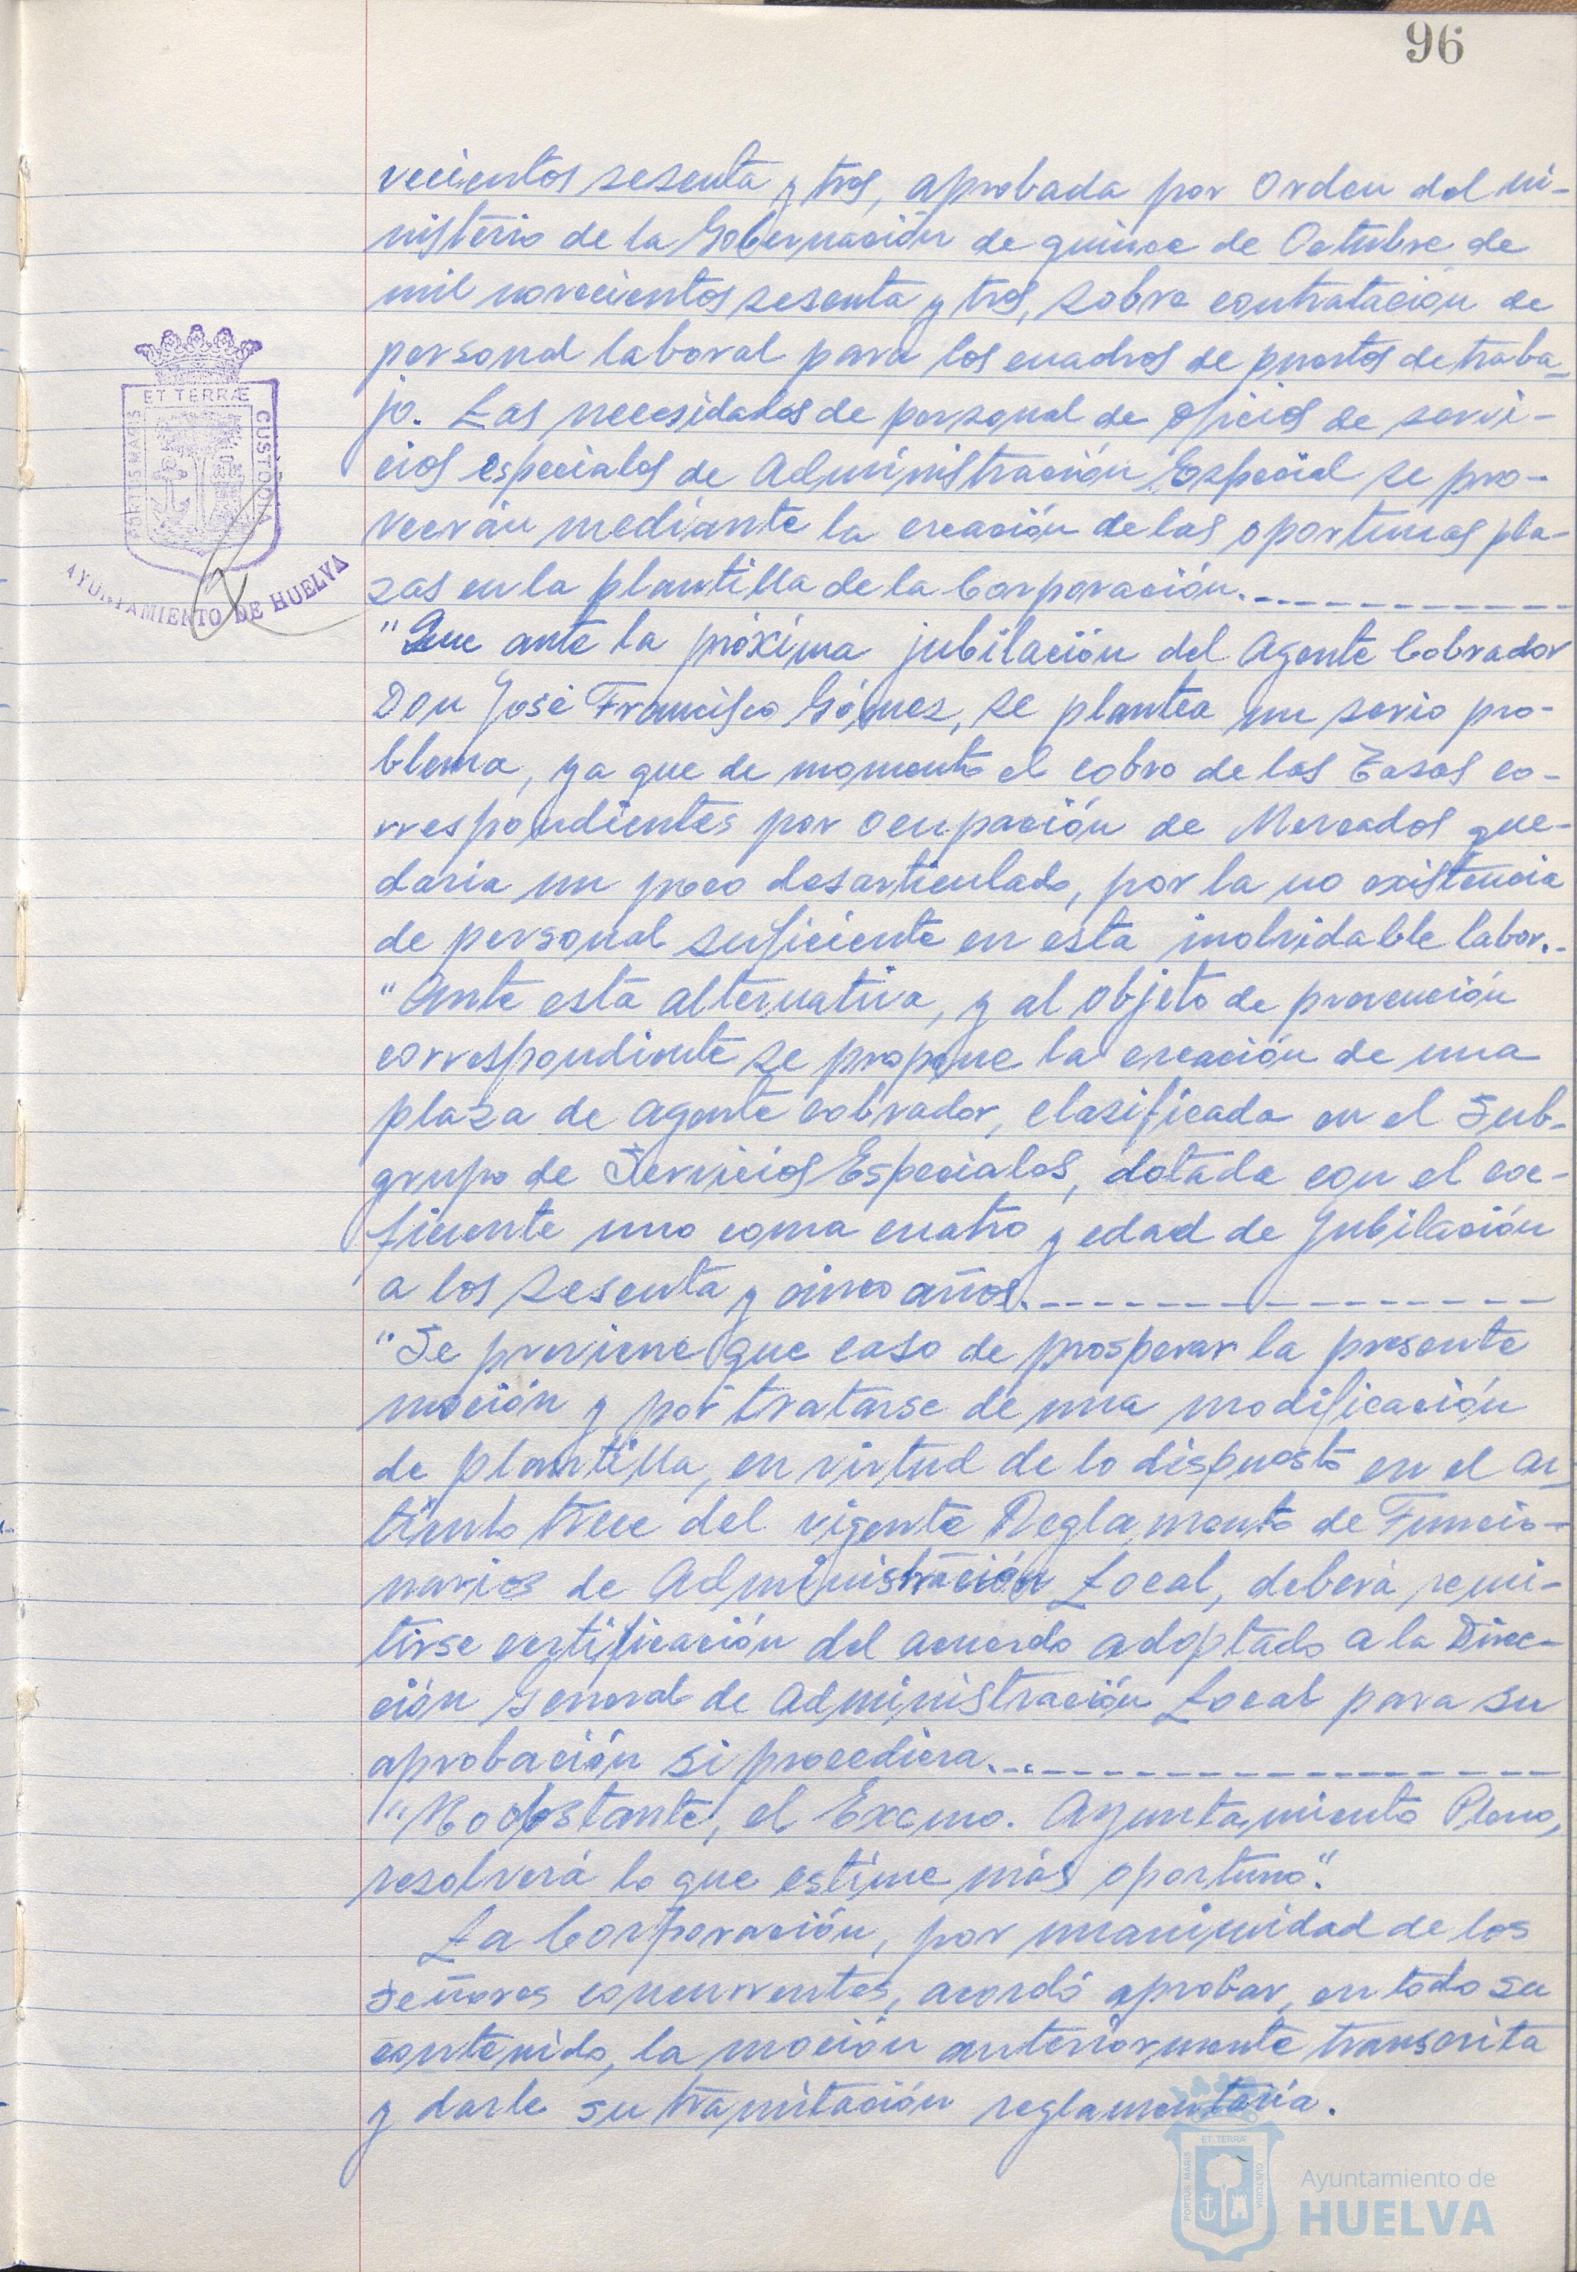 96
vecientos sesenta y tres, aprobada por Orden del mi-
nisterio de la Gobernación de quince de Octubre de
mil novecientos sesenta y tres, sobre contratación de
personal laboral para los cuadros de puestos de traba-
jo. Las necesidades de personal de oficios de servi-
cios especiales de Administración Especial se pro-
veerán mediante la creación de las oportunas pla-
zas en la plantilla de la Corporación.
"Que ante la próxima jubilación del Agente Cobrador
Don José Francisco Gómez, se plantea un serio pro-
blema, ya que de momento el cobro de las Tasas co-
rrespondientes por ocupación de Mercados que-
daria un poco desarticulado, por la no existencia
de personal suficiente en esta inolvidable labor.-
"Ante esta alternativa, y al objeto de prevención
correspondiente se propone la creación de una
plaza de agente cobrador, clasificada en el Sub-
grupo de Servicios Especiales, dotada con el coe-
ficiente uno coma cuatro y edad de Jubilación
a los sesenta y cinco años.
"Se previene que caso de prosperar la presente
moción y por tratarse de una modificación
de plantilla, en virtud de lo dispuesto en el ar-
tículo trece del vigente Reglamento de Funcio-
narios de Administración Local, deberá remi-
tirse certificación del acuerdo adoptado a la Direc-
ción General de Administración Local para su
aprobación si procediera.
"No obstante, el Excmo. Ayuntamiento Pleno,
resolverá lo que estime más oportuno".
La Corporación, por unanimidad de los
señores concurrentes, acordó aprobar, en todo su
contenido, la moción anteriormente transcrita
y darle su tramitación reglamentaria.
PORTUS MARIS
ET TERRÆ
CUSTODIA
AYUNTAMIENTO DE HUELVA
PORTUS MARIS
ET TERRÆ
CUSTODIA
Ayuntamiento de
HUELVA